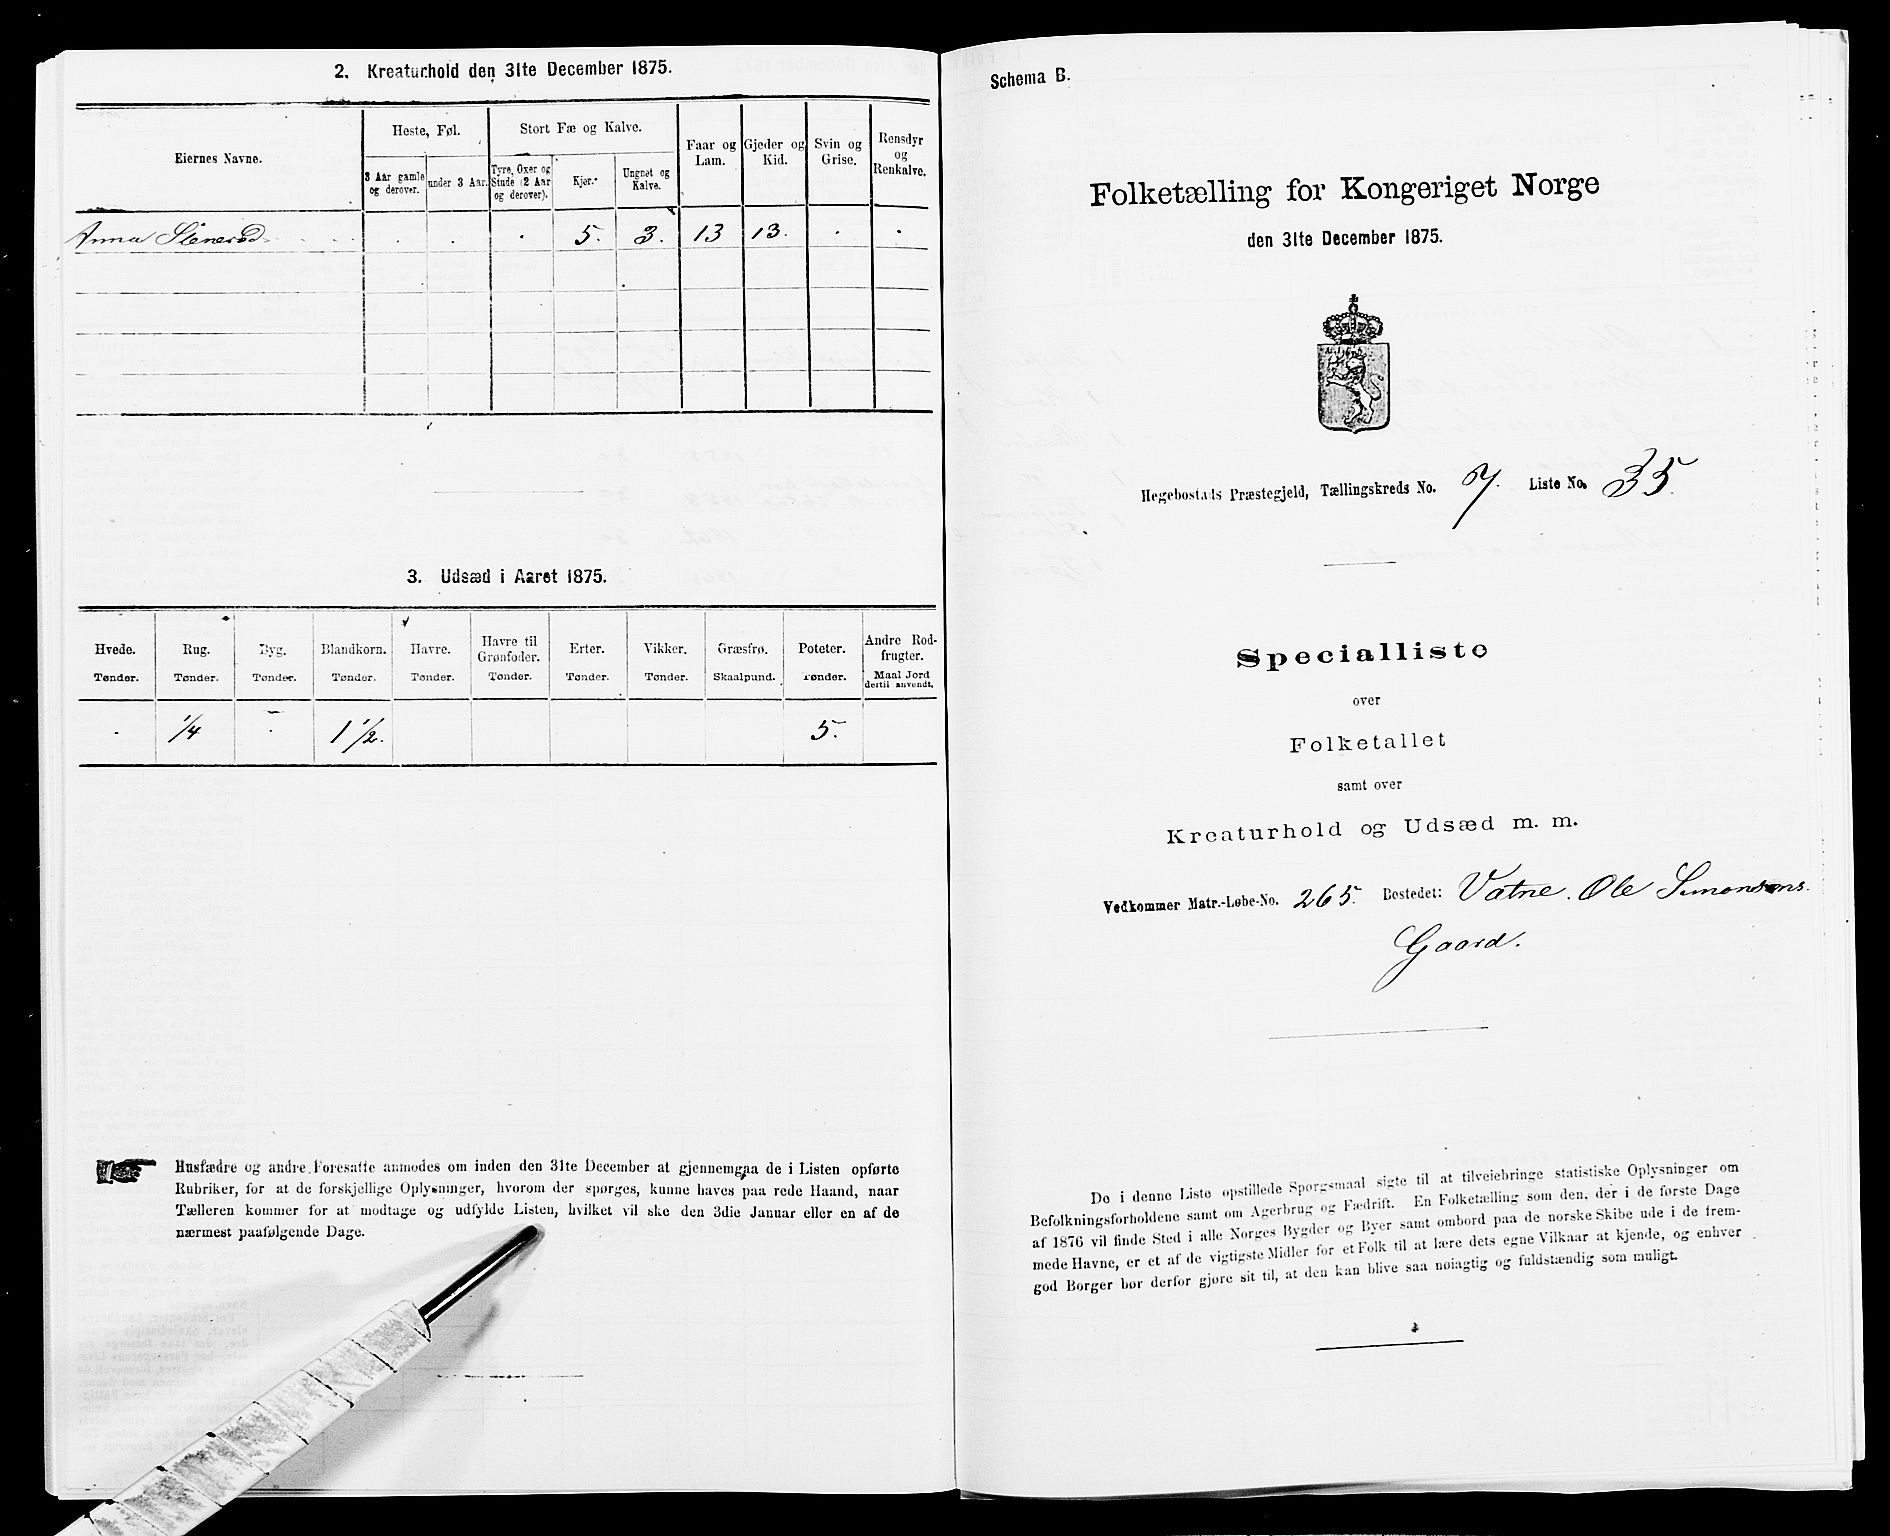 2. Kreaturhold den 31te December 1875.
Eiernes Navne.
Heste, Føl.
3 Aar gamle og derover.
under 3 Aar.
Stort Fæ og Kalve.
Tyre, Oxer og Stude (2 Aar og derover).
Kjør.
Ungnøt og Kalve.
Faar og Lam.
Gjeder og Kid.
Svin og Grise.
Rensdyr og Renkalve.
Anna Stenerød . . . 5. 3. 13 13. . .
3. Udsæd i Aaret 1875.
Hvede. Rug. Byg. Blandkorn. Havre. Havre til Grønfoder. Erter. Vikker. Græsfrø. Poteter. Andre Rodfrugter.
Tønder. Tønder. Tønder. Tønder. Tønder. Tønder. Tønder. Tønder. Skaalpund. Tønder. Maal Jord dertil anvendt.
. 1/4 . 1 1/2. 5.
Husfædre og andre Foresatte anmodes om inden den 31te December at gjennemgaa de i Listen opførte
Rubriker, for at de forskjellige Oplysninger, hvorom der spørges, kunne haves paa rede Haand, naar
Tælleren kommer for at modtage og udfylde Listen, hvilket vil ske den 3die Januar eller en af de
nærmest paafølgende Dage.
Schema B.
Folketælling for Kongeriget Norge
den 31te December 1875.
Hegebostads Præstegjeld, Tællingskreds No. 7. Liste No. 35.
Specialliste
over
Folketallet
samt over
Kreaturhold og Udsæd m. m.
Vedkommer Matr.-Løbe-No. 265. Bostedet: Vatne. Ole Simonsens
Gaard.
De i denne Liste opstillede Spørgsmaal sigte til at tilveiebringe statistiske Oplysninger om
Befolkningsforholdene samt om Agerbrug og Fædrift. En Folketælling som den, der i de første Dage
af 1876 vil finde Sted i alle Norges Bygder og Byer samt ombord paa de norske Skibe ude i de frem-
mede Havne, er et af de vigtigste Midler for et Folk til at lære dets egne Vilkaar at kjende, og enhver
god Borger bør derfor gjøre sit til, at den kan blive saa nøiagtig og fuldstændig som muligt.